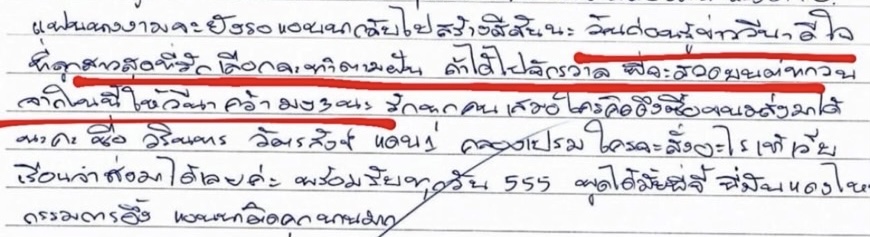 แฟนนางงามจะยังรอแอนนากลับไปสร้างสีสันนะ วันก่อนรู้ข่าววีนาดีใจ
ที่ลูกสาวสุดที่รักเลือกจะทำตามฝัน ถ้าได้ไปจักรวาล พี่จะสวดมนต์ทุกวัน
จากในนี้ ให้วีนาคว้ามง 3 นะ รักทุกคนเสมอ ใครคิดถึงซื้อขนมส่งมาได้
นะคะ ชื่อ วรินทร วัตรสังข์ แดน 1 คลองเปรม ใครจะสั่งอะไร เข้าเว็บ
เรือนจำส่งมาได้เลยค่ะ พร้อมรับทุกวัน 555 พูดได้มั้ยพี่จี้ พี่มันแดงไหม
กรรมการอึ้ง แอนนาติดคุกนานมาก